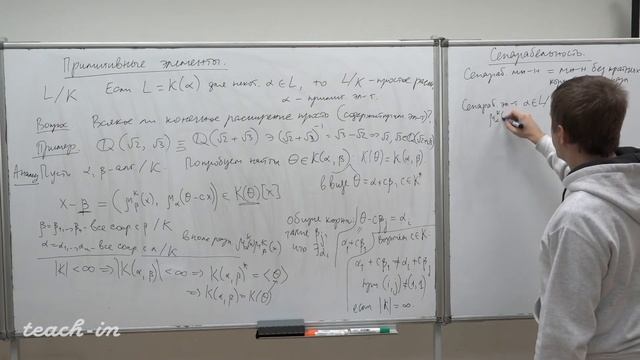 Примитивные элементы.
L/K Если L = K(α) для некот. α ∈ L, то L/K – простое расш.
α – примит. эл-т.
Вопрос Всякое ли конечное расширение просто (содержит прим. эл-т)?
Пример. ℚ(√2, √3) = ℚ(√2 + √3) ∋ (√2 + √3)⁻¹ = √3 − √2 ⇒ √2, √3 ∈ ℚ(√2+√3)
Пусть α, β – алг./K. Попробуем найти θ ∈ K(α, β) K(θ) = K(α, β)
в виде θ = α + cβ, c ∈ K*
x − β = (μ_β^K(x), μ_α^K(θ − cx)) ∈ K(θ)[x]
β = β₁, … – все сопр. с β / K
α = α₁, … – все сопр. с α / K
в поле разл.
Общие корни: θ − cβ_j = α_i
такие β_j, что ∃ α_i
α + cβ
возьмём c ∈ K:
α₁ + cβ₁ ≠ α_i + cβ_j
при (i, j) ≠ (1, 1)
если |K| = ∞.
|K| < ∞ ⇒ |K(α, β)| < ∞ ⇒ K(α, β)* = ⟨θ⟩
⇒ K(α, β) = K(θ)
Сепарабельность.
Сепараб. мн-н = мн-н без кратных
Сепараб. эл-т α ∈ L/
teach-in